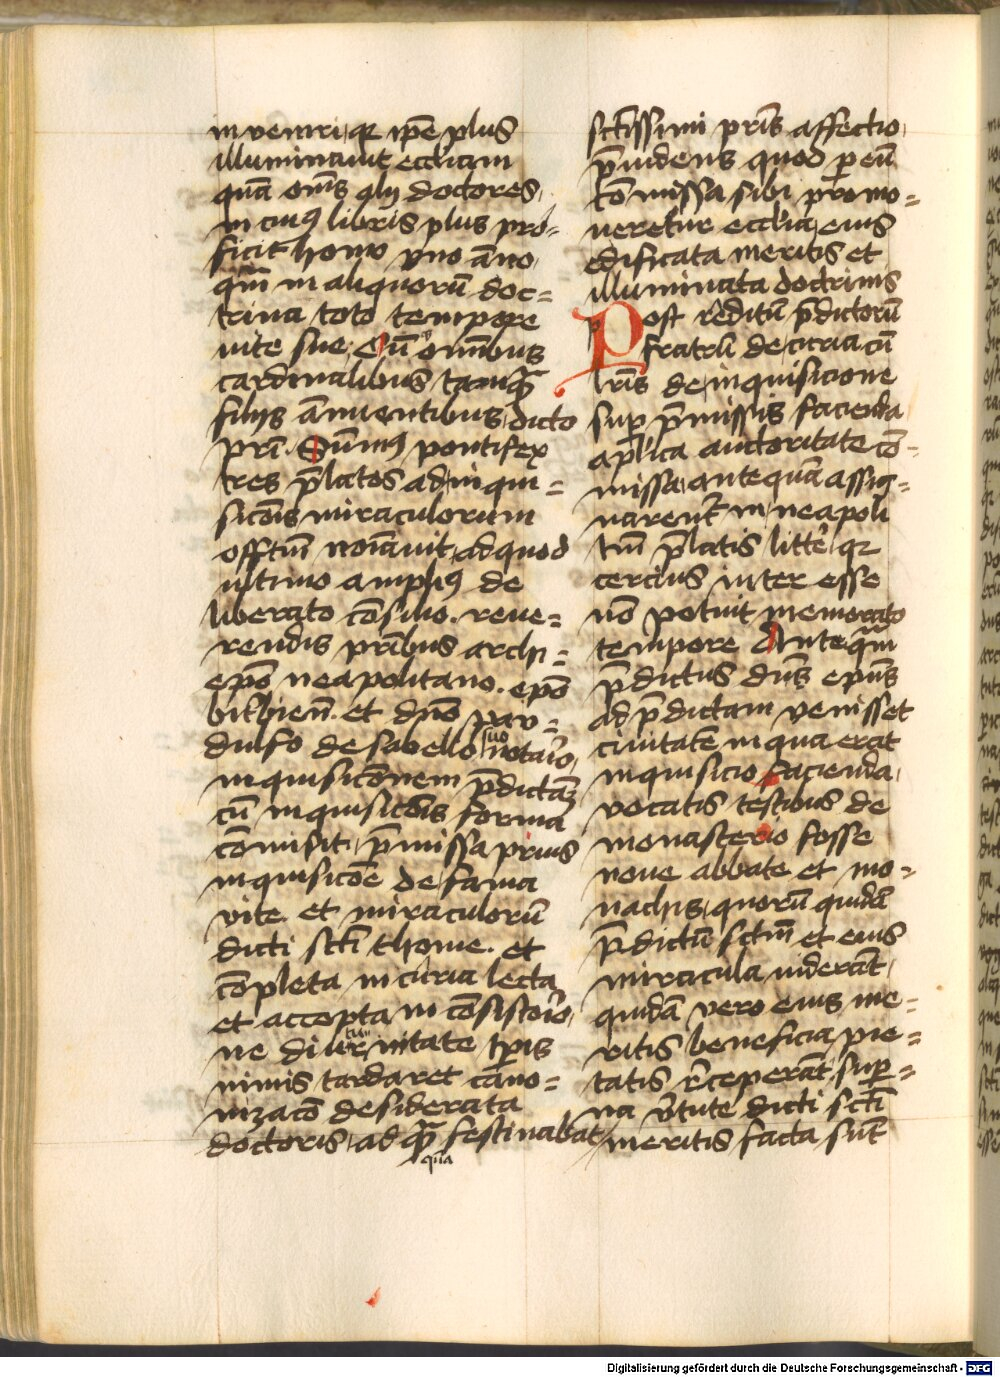 inveniri, qz ip̄e plus
illuminauit eccl̓iam
quā om̄s alij doctores,
in cuiꝯ libris plus pro-
ficit homo vno anno,
qm̄ in aliquorū doc=
trina toto tempore
vite sue. Cū om̄ībus
cardinalibus tamqꝫ
filijs ānuentibus, dicto
pr̄i. Sūmꝯ pontifex
tres p̄latos ad inqui=
sicōis miraculorum
offm̄ noīauit, ad quod
ultimo ampliꝯ de
liberato cōsilio. reue=
rendis pr̄ibus archi=
ep̄o neapolitano. ep̄o
biterbien̄. et dn̄o pan=
dulfo de sabello suo notar̓io,
inquisicōnem p̄dictā
cū inquisicōis forma
cōmisit, p̄missa prius
inquisicōe de fama
vite et miraculorū
dicti sct̄i thome. et
cōpleta in curia lecta
et accepta in cōsistor̓io,
ne diuturnitate tp̄is
nimis tardaret cano=
nizacō desiderata
doctoris, ad qꝫ festinabat
qua
sctissimi pr̄is affectio,
p̄uidens quod p eū
cōmissa sibi promo=
ueretur eccl̓ia, eius
edificata meritis et
illuminata doctrinis
Post reditū p̄dictorū
fratrū de curia cū
lr̄is de inquisicione
sup p̄missis facienda
ap̄lica auctoritate cō-
missa, antequā assig=
narent̄ in neapoli
tm̄ p̄latis litte, qz
cercius inter esse
nō potuit memorato
tempore Anteqm̄
p̄dictus dn̄s ep̄us
ad p̄dictam venisset
ciuitatē in qua erat
inquisicio facienda,
vocatis testibus de
monasterio fosse
noue abbate et mo=
nachis, quorū quidā
p̄dictū sct̄m et eius
miracula uiderāt,
quidā vero eius me=
ritis beneficia pie=
tatis rceperāt, sup=
na v̓tute dicti sct̄i
meritis facta sūt
Digitalisierung gefördert durch die Deutsche Forschungsgemeinschaft - DFG